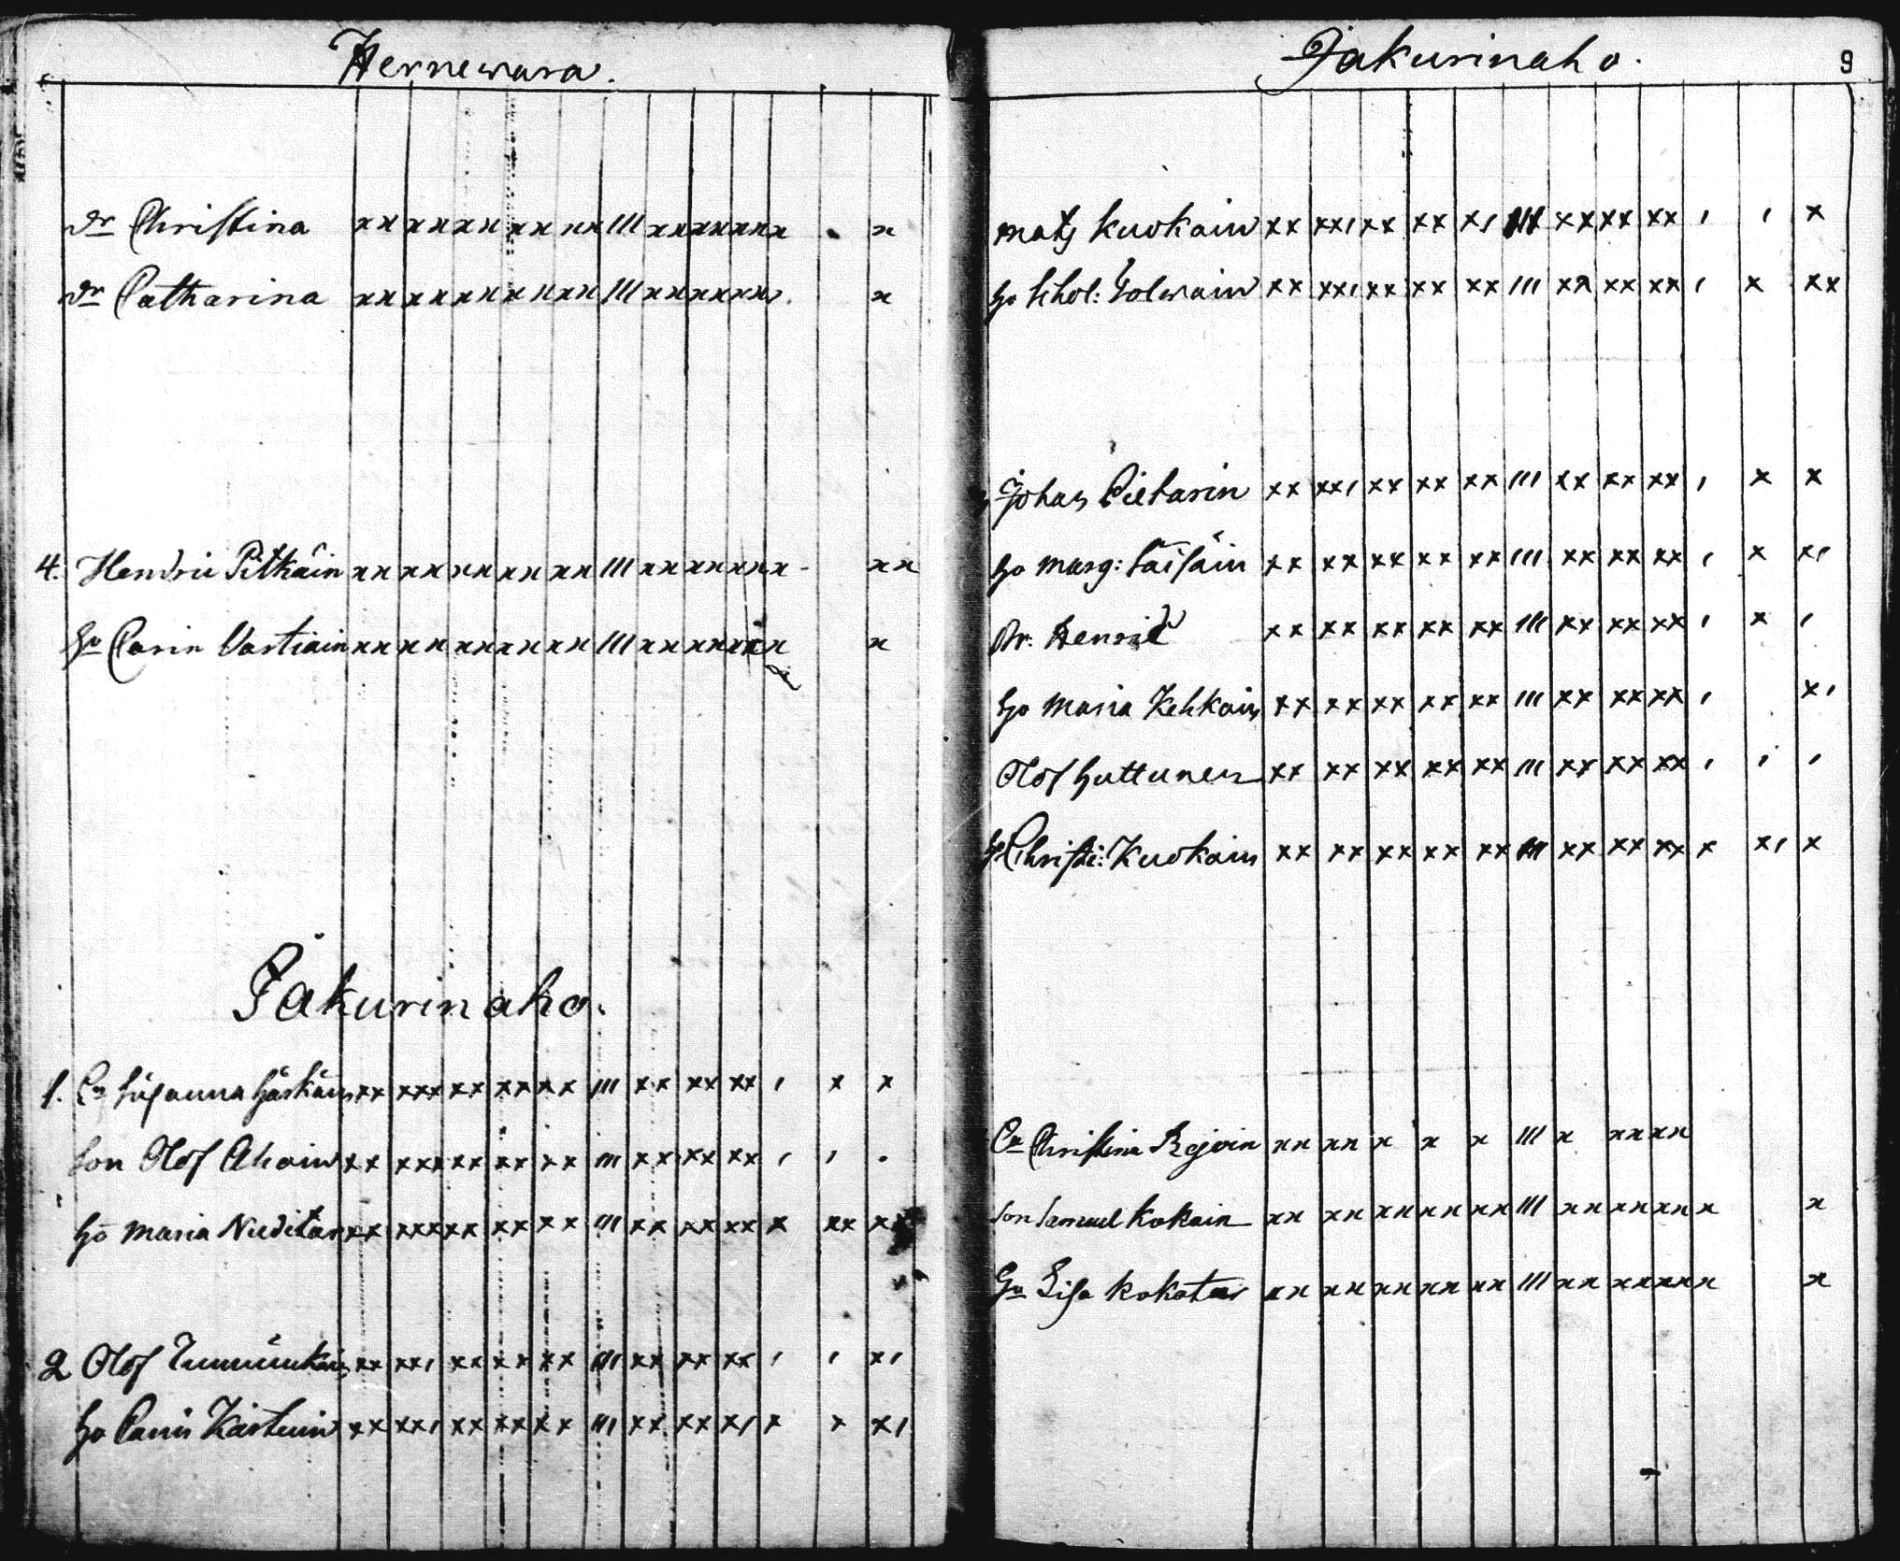 Hernewara.
Dr Christina xx xx xx xx xx III xx xx xx x . x
Dr Catharina xx xx xx xx xx III xx xx xx . x
4. Hendric Pitkäin xx xx xx xx xx III xx xx xx x - xx
hu Carin Vartiain xx xx xx xx xx III xx xx xx x x
Pakurinaho.
1. xx xxx xx xx xx III xx xx xx ı x x
Son Olof xx xxx xx xx xx III xx xx xx ı ı .
hu Maria Nuditar xx xxx xx xx xx III xx xx xx x xx x
2 Olof xx xxı xx xx xx III xx xx xx ı ı xı
hu xx xxı xx xx xx III xx xx xı x x xı
Pakurinaho. 9
mats Kuokain xx xxı xx xx xı III xx xx xx ı ı x
hu xx xxı xx xx xx III xx xx xx ı x xx
Johan Pietarin xx xxı xx xx xx III xx xx xx ı x x
hu marg: xx xx xx xx xx III xx xx xx ı x xı
Br. Henric xx xx xx xx xx III xx xx xx ı x ı
hu maria Kehkoin xx xx xx xx xx III xx xx xx ı xı
Olof huttunen xx xx xx xx xx III xx xx xx ı ı ı
h. Christi: Kuokain xx xx xx xx xx III xx xx xx x xı x
Christina xx xx x x x III x xx xx
Son Samuel Kokoin xx xx xx xx xx III xx xx xx x x
hu Lisa Kokotar xx xx xx xx xx III xx xx xx x x